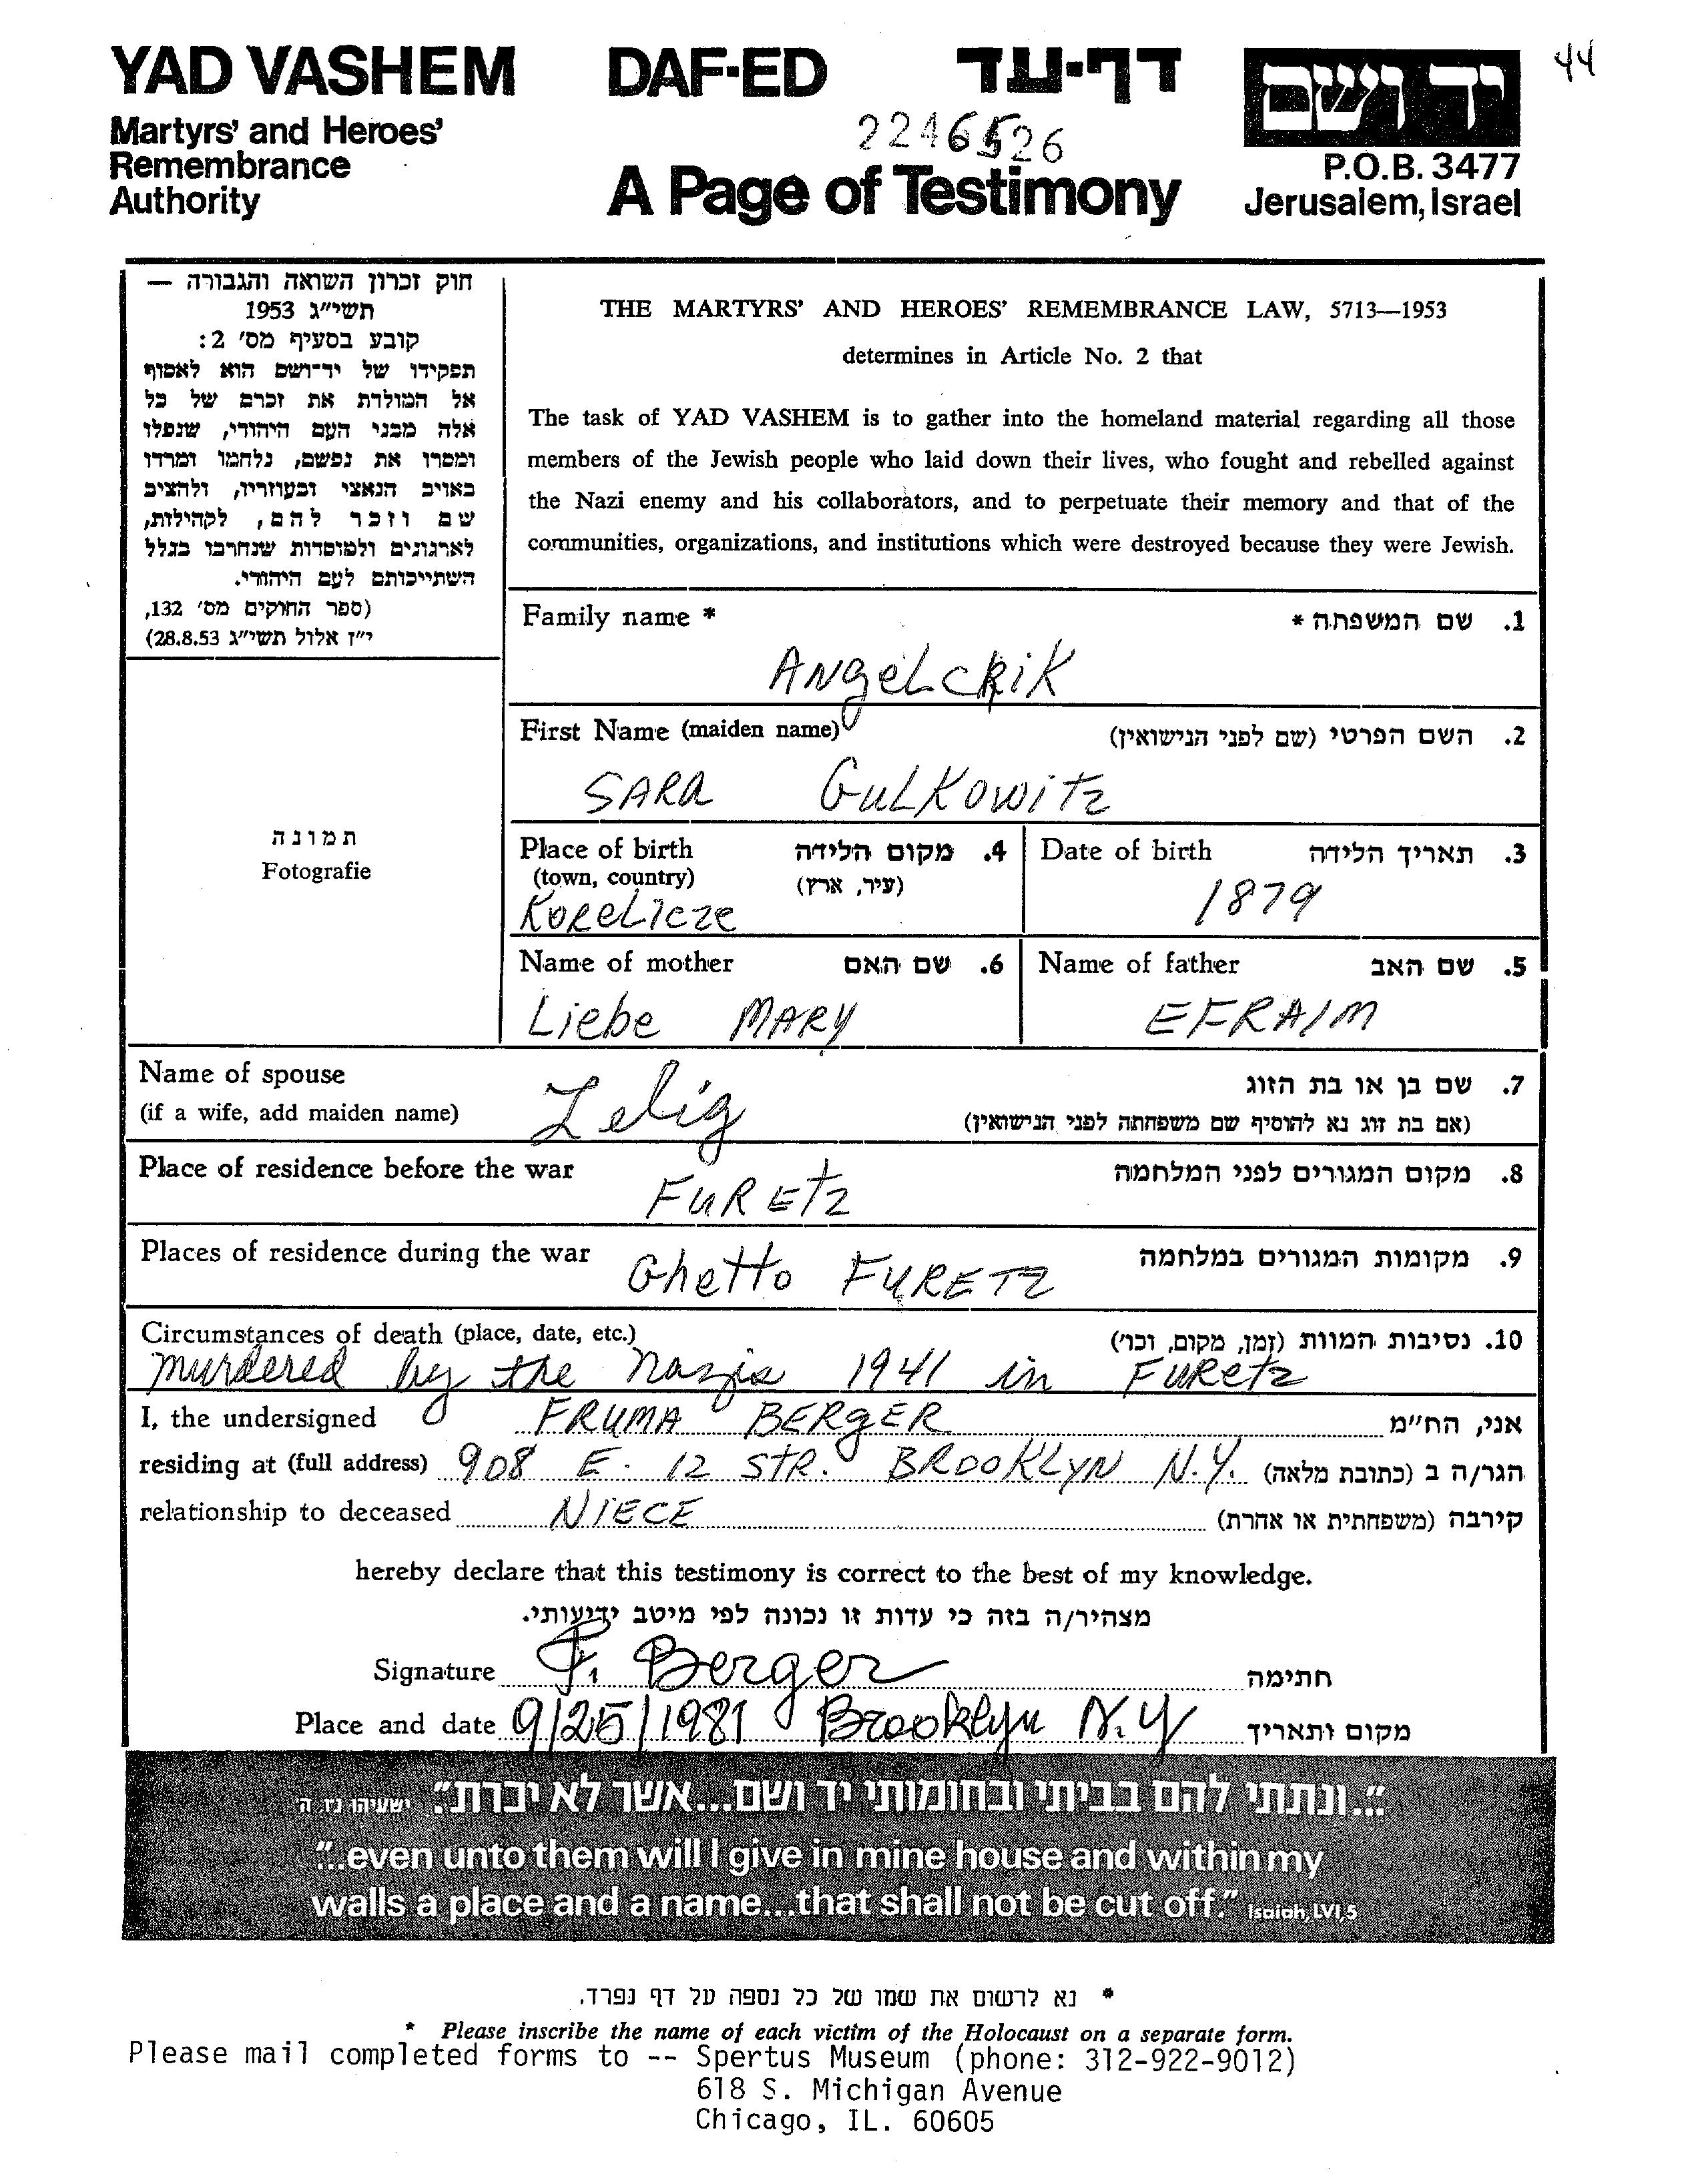 YAD VASHEM DAF-ED דף-עד ידושם 44
Martyrs' and Heroes'
Remembrance
Authority
2246526
A Page of Testimony
P.O.B. 3477
Jerusalem, Israel
חוק זכרון השואה והגבורה —
תשי"ג 1953
קובע בסעיף מס' 2:
תפקידו של יד-ושם הוא לאסוף
אל המולדת את זכרם של כל
אלה מבני העם היהודי, שנפלו
ומסרו את נפשם, נלחמו ומרדו
באויב הנאצי ובעוזריו, ולהציב
שם וזכר להם, לקהילות,
לארגונים ולמוסדות שנחרבו בגלל
השתייכותם לעם היהודי.
(ספר החוקים מס' 132,
י"ז אלול תשי"ג 28.8.53)
THE MARTYRS' AND HEROES' REMEMBRANCE LAW, 5713—1953
determines in Article No. 2 that
The task of YAD VASHEM is to gather into the homeland material regarding all those
members of the Jewish people who laid down their lives, who fought and rebelled against
the Nazi enemy and his collaborators, and to perpetuate their memory and that of the
communities, organizations, and institutions which were destroyed because they were Jewish.
תמונה
Fotografie
Family name * 1. שם המשפחה *
ANgeLCRiK
First Name (maiden name) 2. השם הפרטי (שם לפני הנישואין)
SARA GuLKowitz
Place of birth 4. מקום הלידה
(town, country) (עיר, ארץ)
KoReLicze
Date of birth 3. תאריך הלידה
1879
Name of mother 6. שם האם
Liebe MARY
Name of father 5. שם האב
EFRAIM
Name of spouse 7. שם בן או בת הזוג
(if a wife, add maiden name) Zelig (אם בת זוג נא להוסיף שם משפחתה לפני הנישואין)
Place of residence before the war 8. מקום המגורים לפני המלחמה
FuREtz
Places of residence during the war Ghetto FuRETZ 9. מקומות המגורים במלחמה
Circumstances of death (place, date, etc.) 10. נסיבות המוות (זמן, מקום, וכו')
murdered by the nazis 1941 in FuRetz
I, the undersigned FRUMA BERgER אני, הח"מ
residing at (full address) 908 E. 12 STR. BROOKLYN N.Y. הגר/ה ב (כתובת מלאה)
relationship to deceased NiECE קירבה (משפחתית או אחרת)
hereby declare that this testimony is correct to the best of my knowledge.
מצהיר/ה בזה כי עדות זו נכונה לפי מיטב ידיעותי.
Signature F. Berger חתימה
Place and date 9/25/1981 Brooklyn N.Y מקום ותאריך
"...ונתתי להם בביתי ובחומותי יד ושם...אשר לא יכרת." ישעיהו נו, ה
"...even unto them will I give in mine house and within my
walls a place and a name...that shall not be cut off." Isaiah, LVI,5
* נא לרשום את שמו של כל נספה על דף נפרד.
* Please inscribe the name of each victim of the Holocaust on a separate form.
Please mail completed forms to -- Spertus Museum (phone: 312-922-9012)
618 S. Michigan Avenue
Chicago, IL. 60605